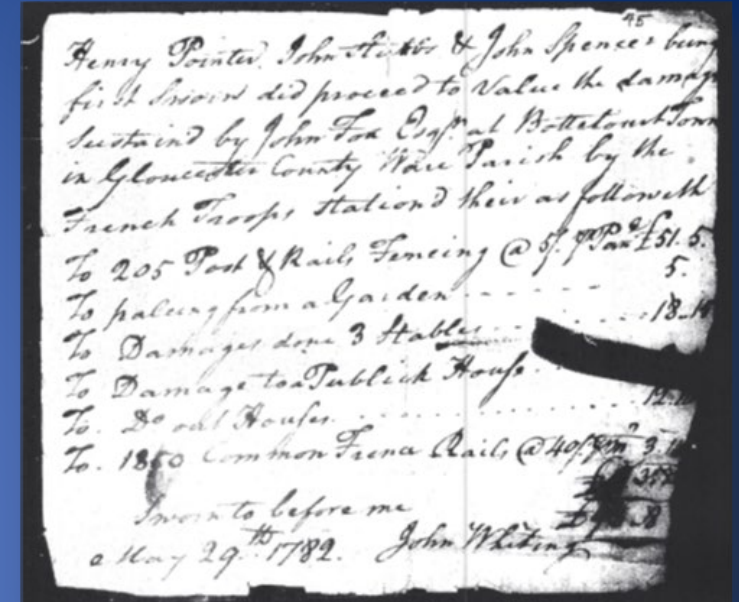 45
Henry Pointer, John & John Spencer being
first Sworn did proceed to Value the damage
Sustaind by John Fox Esqr. at Bottetourt Town
in Gloucester County Ware Parish by the
French Troops Stationd their as followeth
To 205 Post & Rails Fenceing @ 5/. £51.5.
To paleing from a Garden 5.
To Damages done 3 Stables 18.
To Damage to a Publick House
To Do out Houses 12.
To 1850 Common Fence Rails @ 40/. 3.
Sworn to before me
May 29th 1782. John Whiting